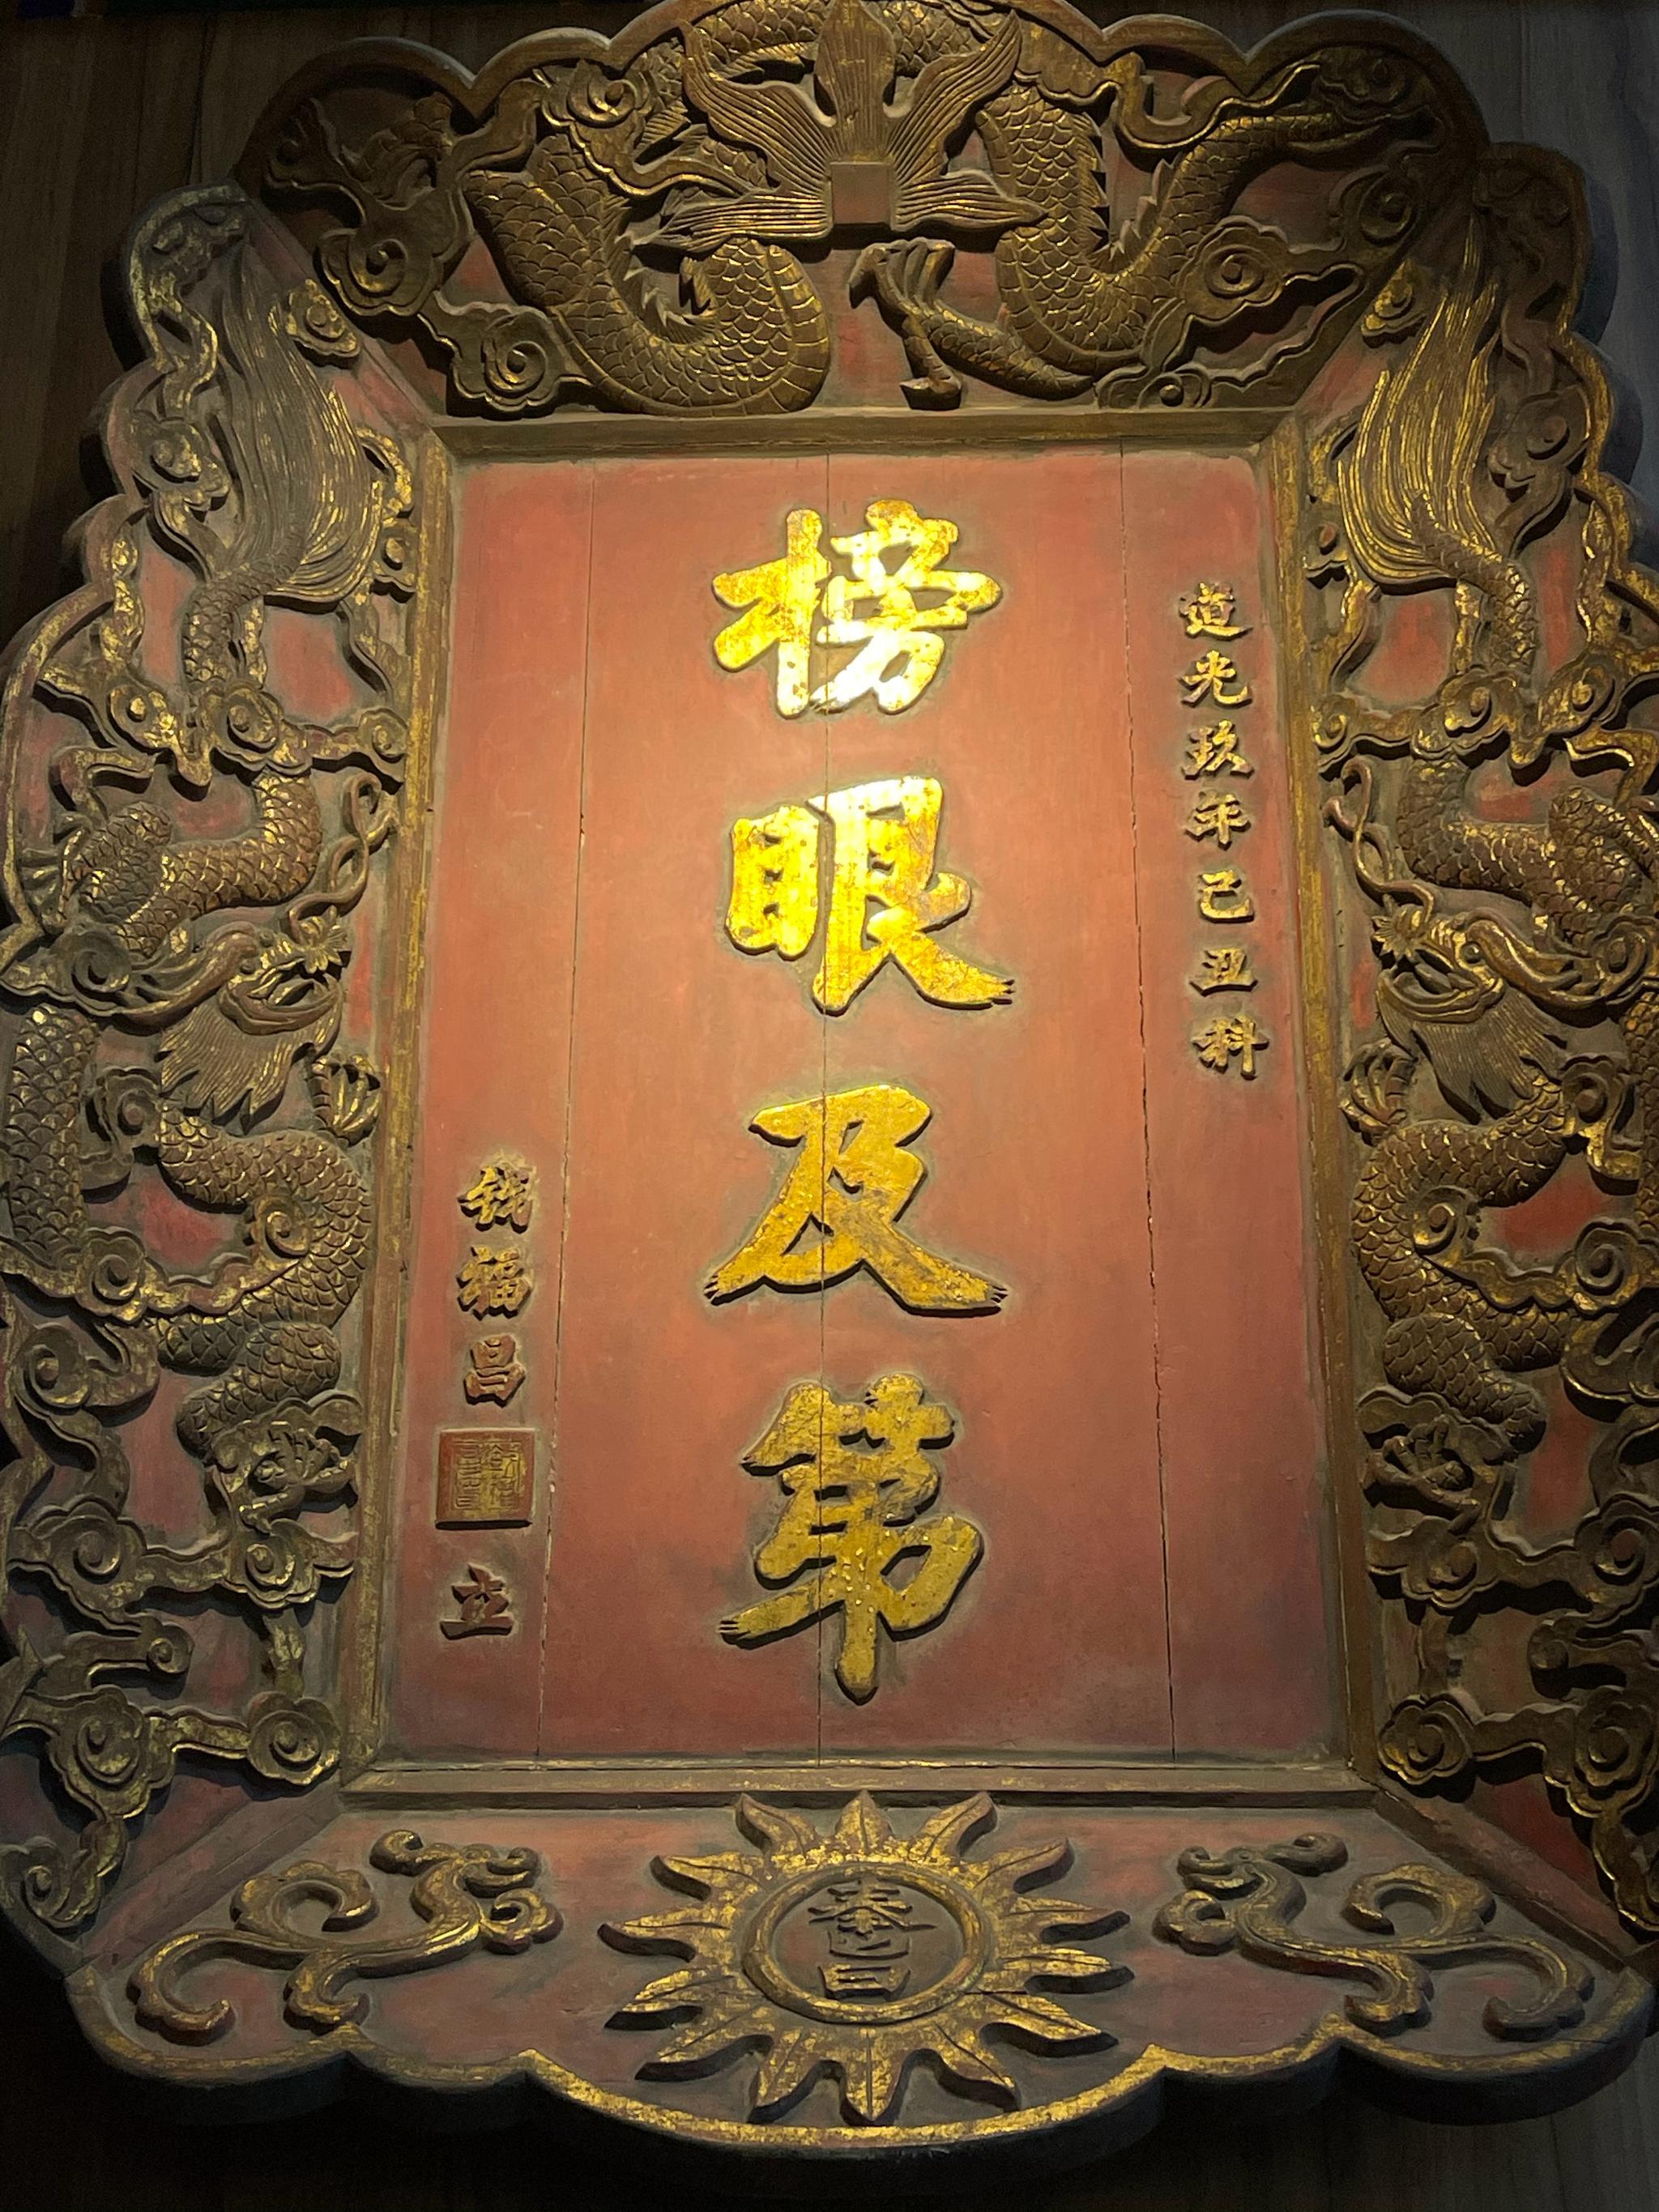 道光玖年己丑科
榜眼及第
钱福昌
立